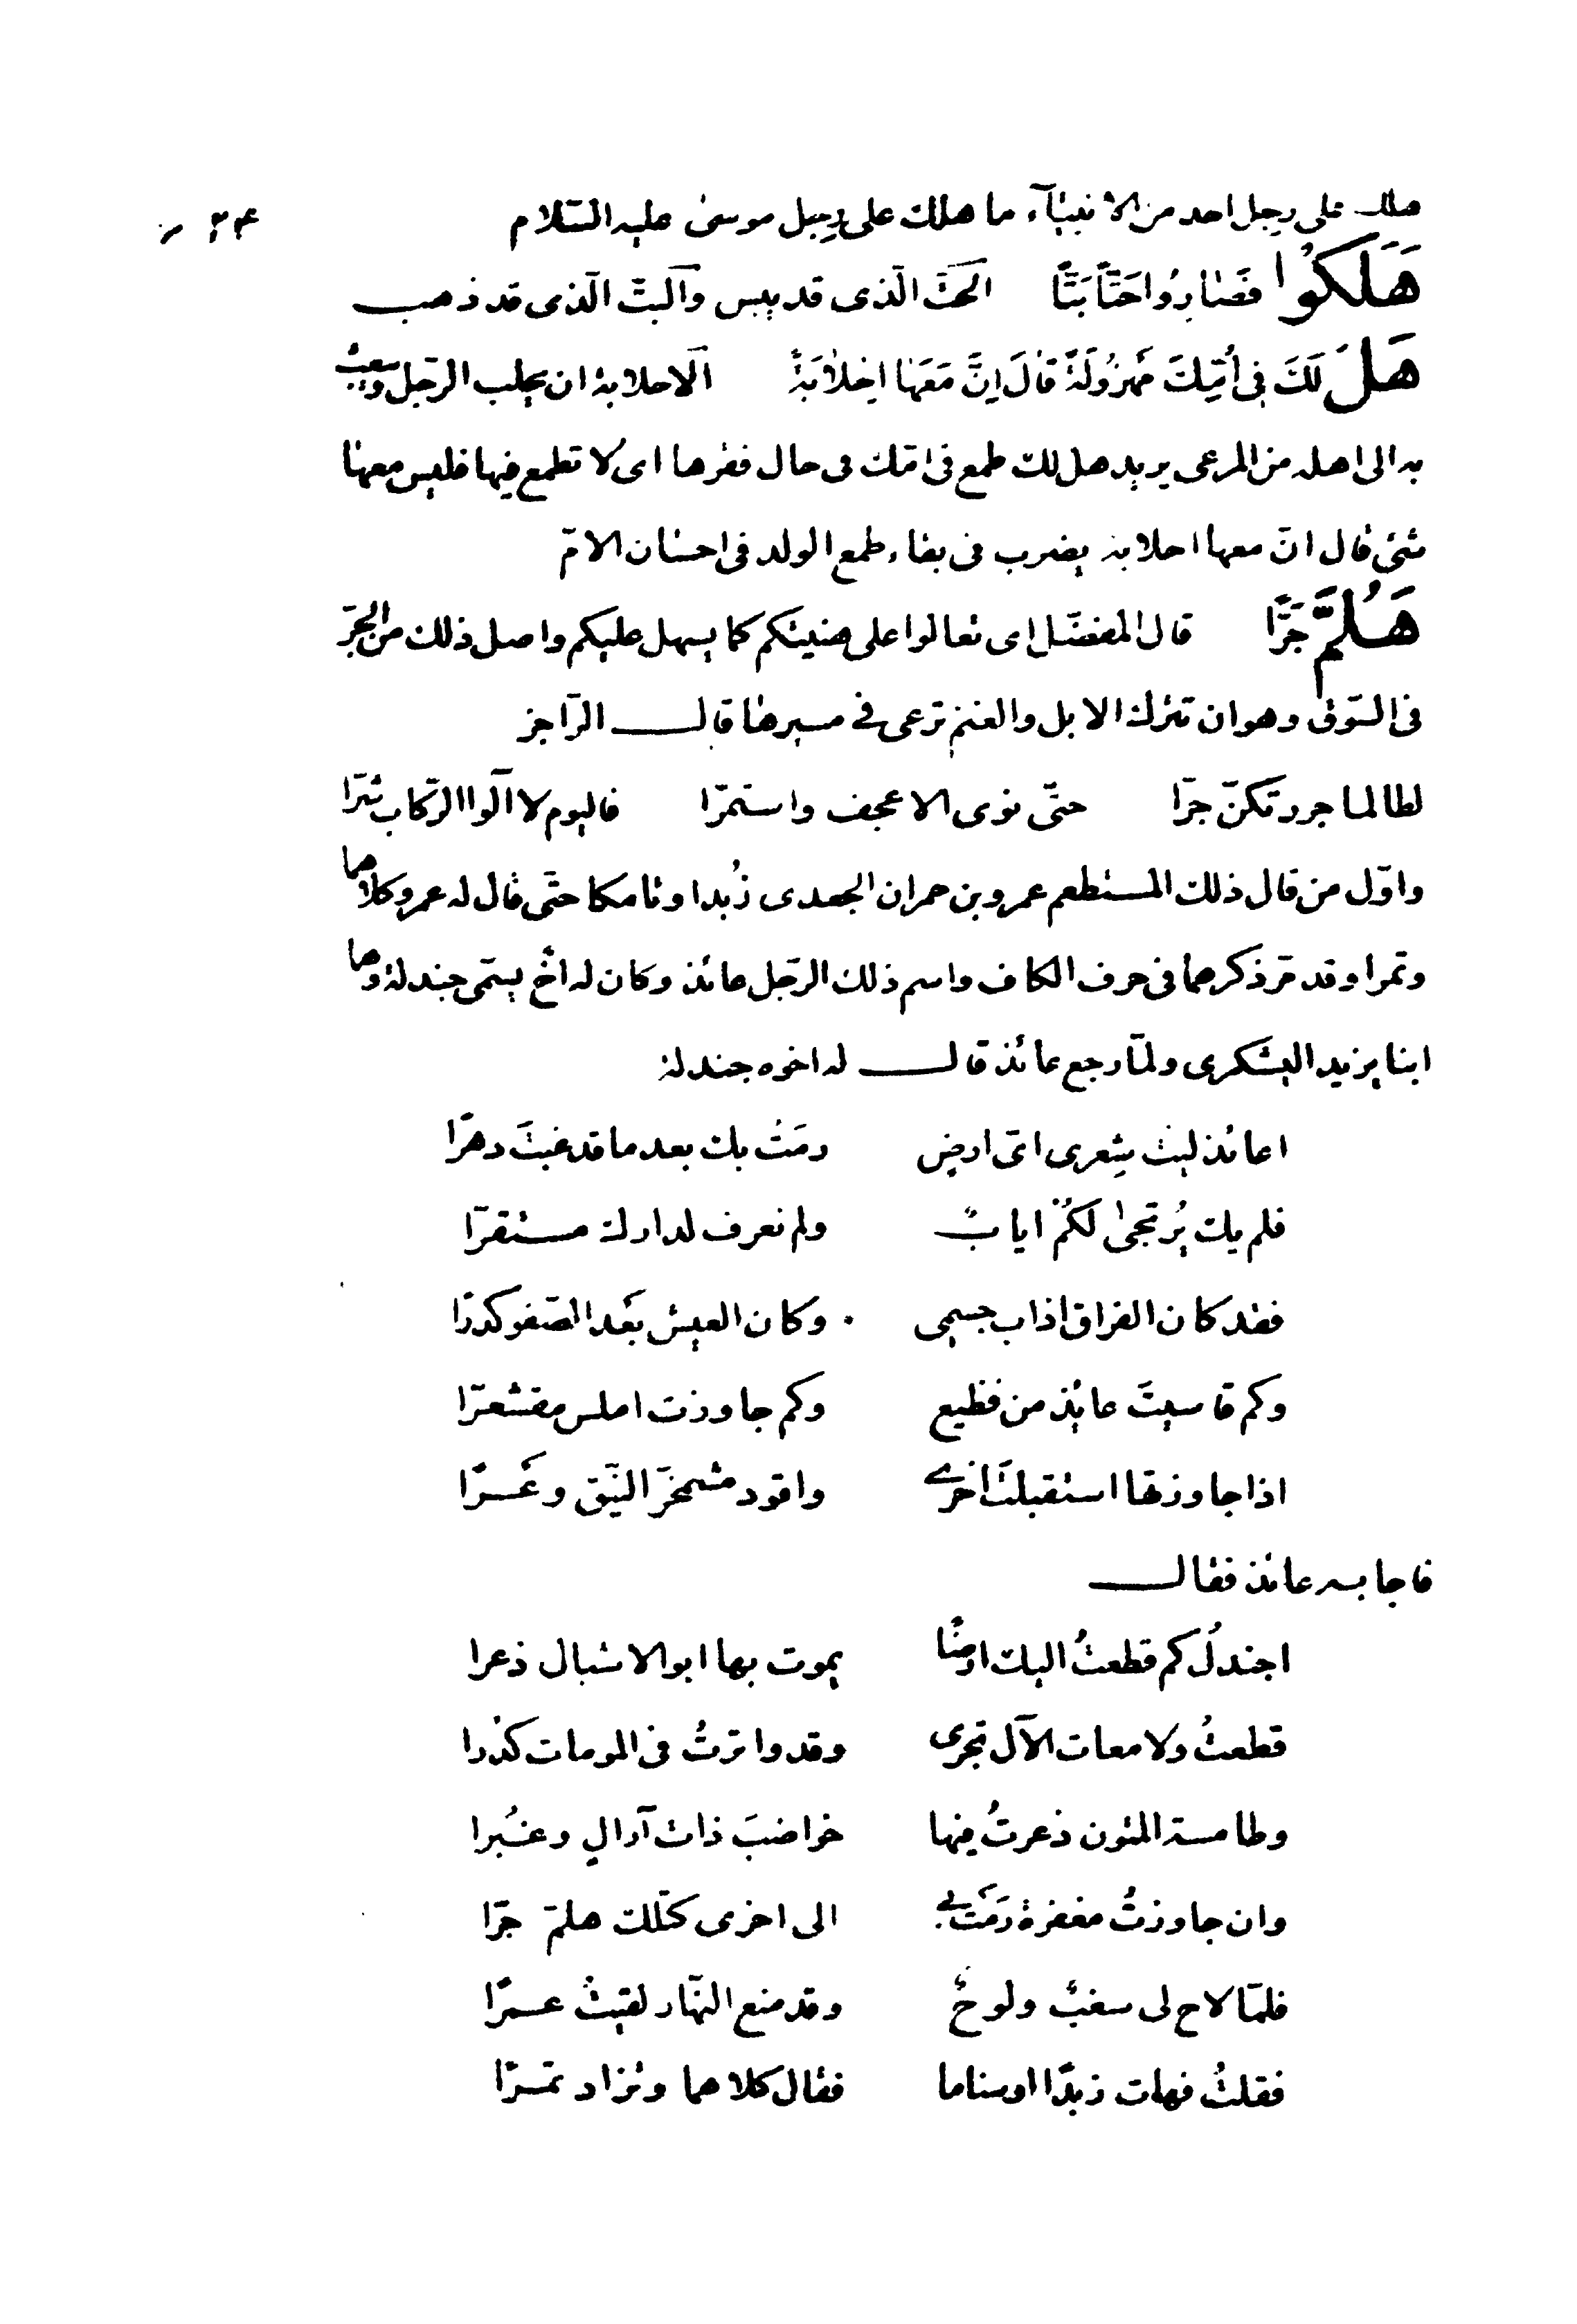 هلك على رجل احد من الانبياء ما هلك على رجل موسى عليه السّلام
هَلَكُوا فَصَارُوا حَتًّا بَتًّا الحتّ الّذى قد يبس والبتّ الّذى قد ذهب
هَلْ لَكَ فِى أُمِّكَ مَهْزُولَةً قَالَ اِنَّ مَعَهَا اِحْلَابَةً الاحلابة ان يحلب الرّجل ويبعث
به الى اهله من المرعى يريد هل لك طمع فى امّك فى حال فقرها اى لا تطمع فيها فليس معها
شئ قال انّ معها احلابة يضرب فى بقاء طمع الولد فى احسان الامّ
هَلُمَّ جَرًّا قال المفضّل اى تعالوا على هينتكم كما يسهل عليكم واصل ذلك من الجرّ
فى السّوق وهو ان تترك الابل والغنم ترعى فى مسيرها قال الرّاجز
لطالما جررتكنّ جرّا حتّى نوى الاعجف واستمرّا فاليوم لا الوا الرّكاب شرّا
واوّل من قال ذلك المستطعم عمرو بن حمران الجعدى زُبدا وتامكا حتّى قال له عمرو كلاهما
وتمرا وقد مرّ ذكرهما فى حرف الكاف واسم ذلك الرّجل عائذ وكان له اخٌ يسمّى جندلة وهما
ابنا يزيد اليشكرى ولمّا رجع عائذ قال له اخوه جندلة
اعائذ ليت شِعرى اىّ ارض رمَتْ بك بعد ما قد غبتَ دهرًا
فلم يك يُرتجى لكُمُ ايابٌ ولم نعرف لدارك مستقرّا
فقد كان الفراق اذاب جسمى وكان العيش بَعْد الصّفو كدرًا
وكم قاسيتَ عائذ من فظيع وكم جاوزت املس مقشعرّا
اذا جاوزتها استقبلتَ اخرى واقود مشمخرّ النّيق وعْرًا
فاجابه عائذ فقال
اجندلُ كم قطعتُ اليك ارضًا يموت بها ابو الاشبال ذعرا
قطعتُ ولامعات الآل تجرى وقد واترتُ فى المومات كُدرا
وطامسة المتون ذعرتُ فيها خواضبَ ذات آرالٍ وغُبرا
وان جاوزتُ مقفرة رَمَتْ بى الى اخرى كتلك هلمّ جرّا
فلمّا لاح لى سغبٌ ولوحٌ وقد منع النّهار لقيتُ عمرًا
فقلتُ فهات زبدًا اوسناما فقال كلاهما وتزاد تمرًا